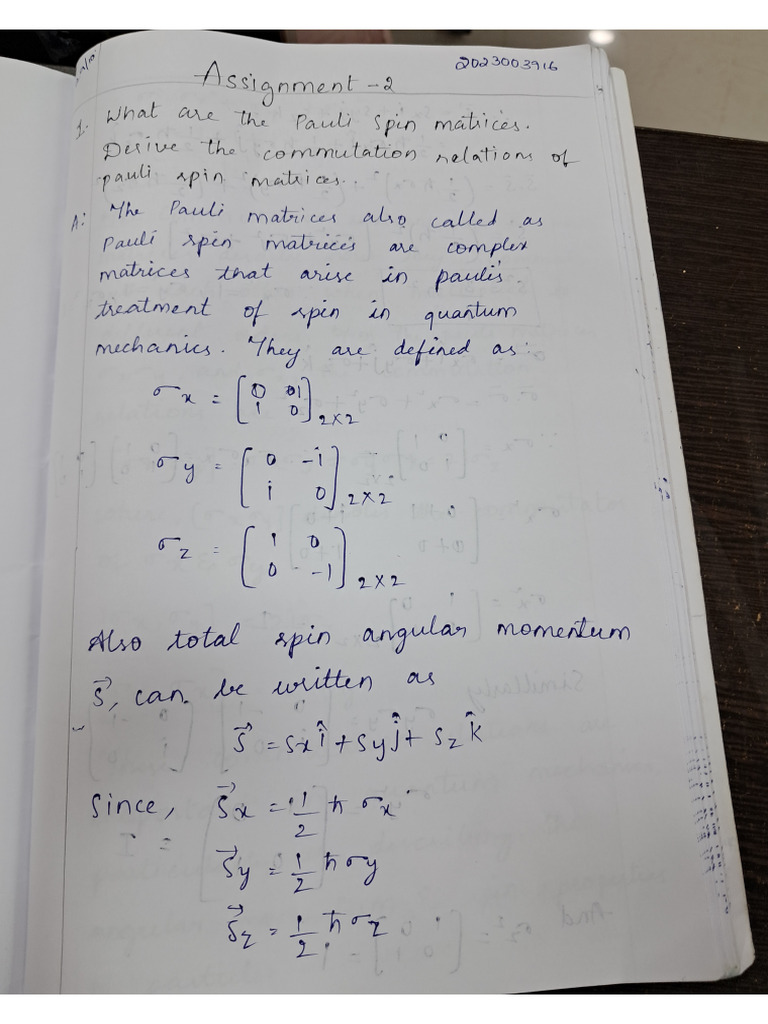 Assignment -2
2023003916
1. What are the Pauli Spin matrices.
Derive the commutation relations of
pauli spin matrices.
A: The Pauli matrices also called as
Pauli spin matrices are complex
matrices that arise in pauli's
treatment of spin in quantum
mechanics. They are defined as:
σx = [0 01
1 0]2×2
σy = [0 -i
i 0]2×2
σz = [1 0
0 -1]2×2
Also total spin angular momentum
S⃗, can be written as
S⃗ = Sx î + Sy ĵ + Sz k̂
Since, S⃗x = 1/2 ħ σx
S⃗y = 1/2 ħ σy
S⃗z = 1/2 ħ σz